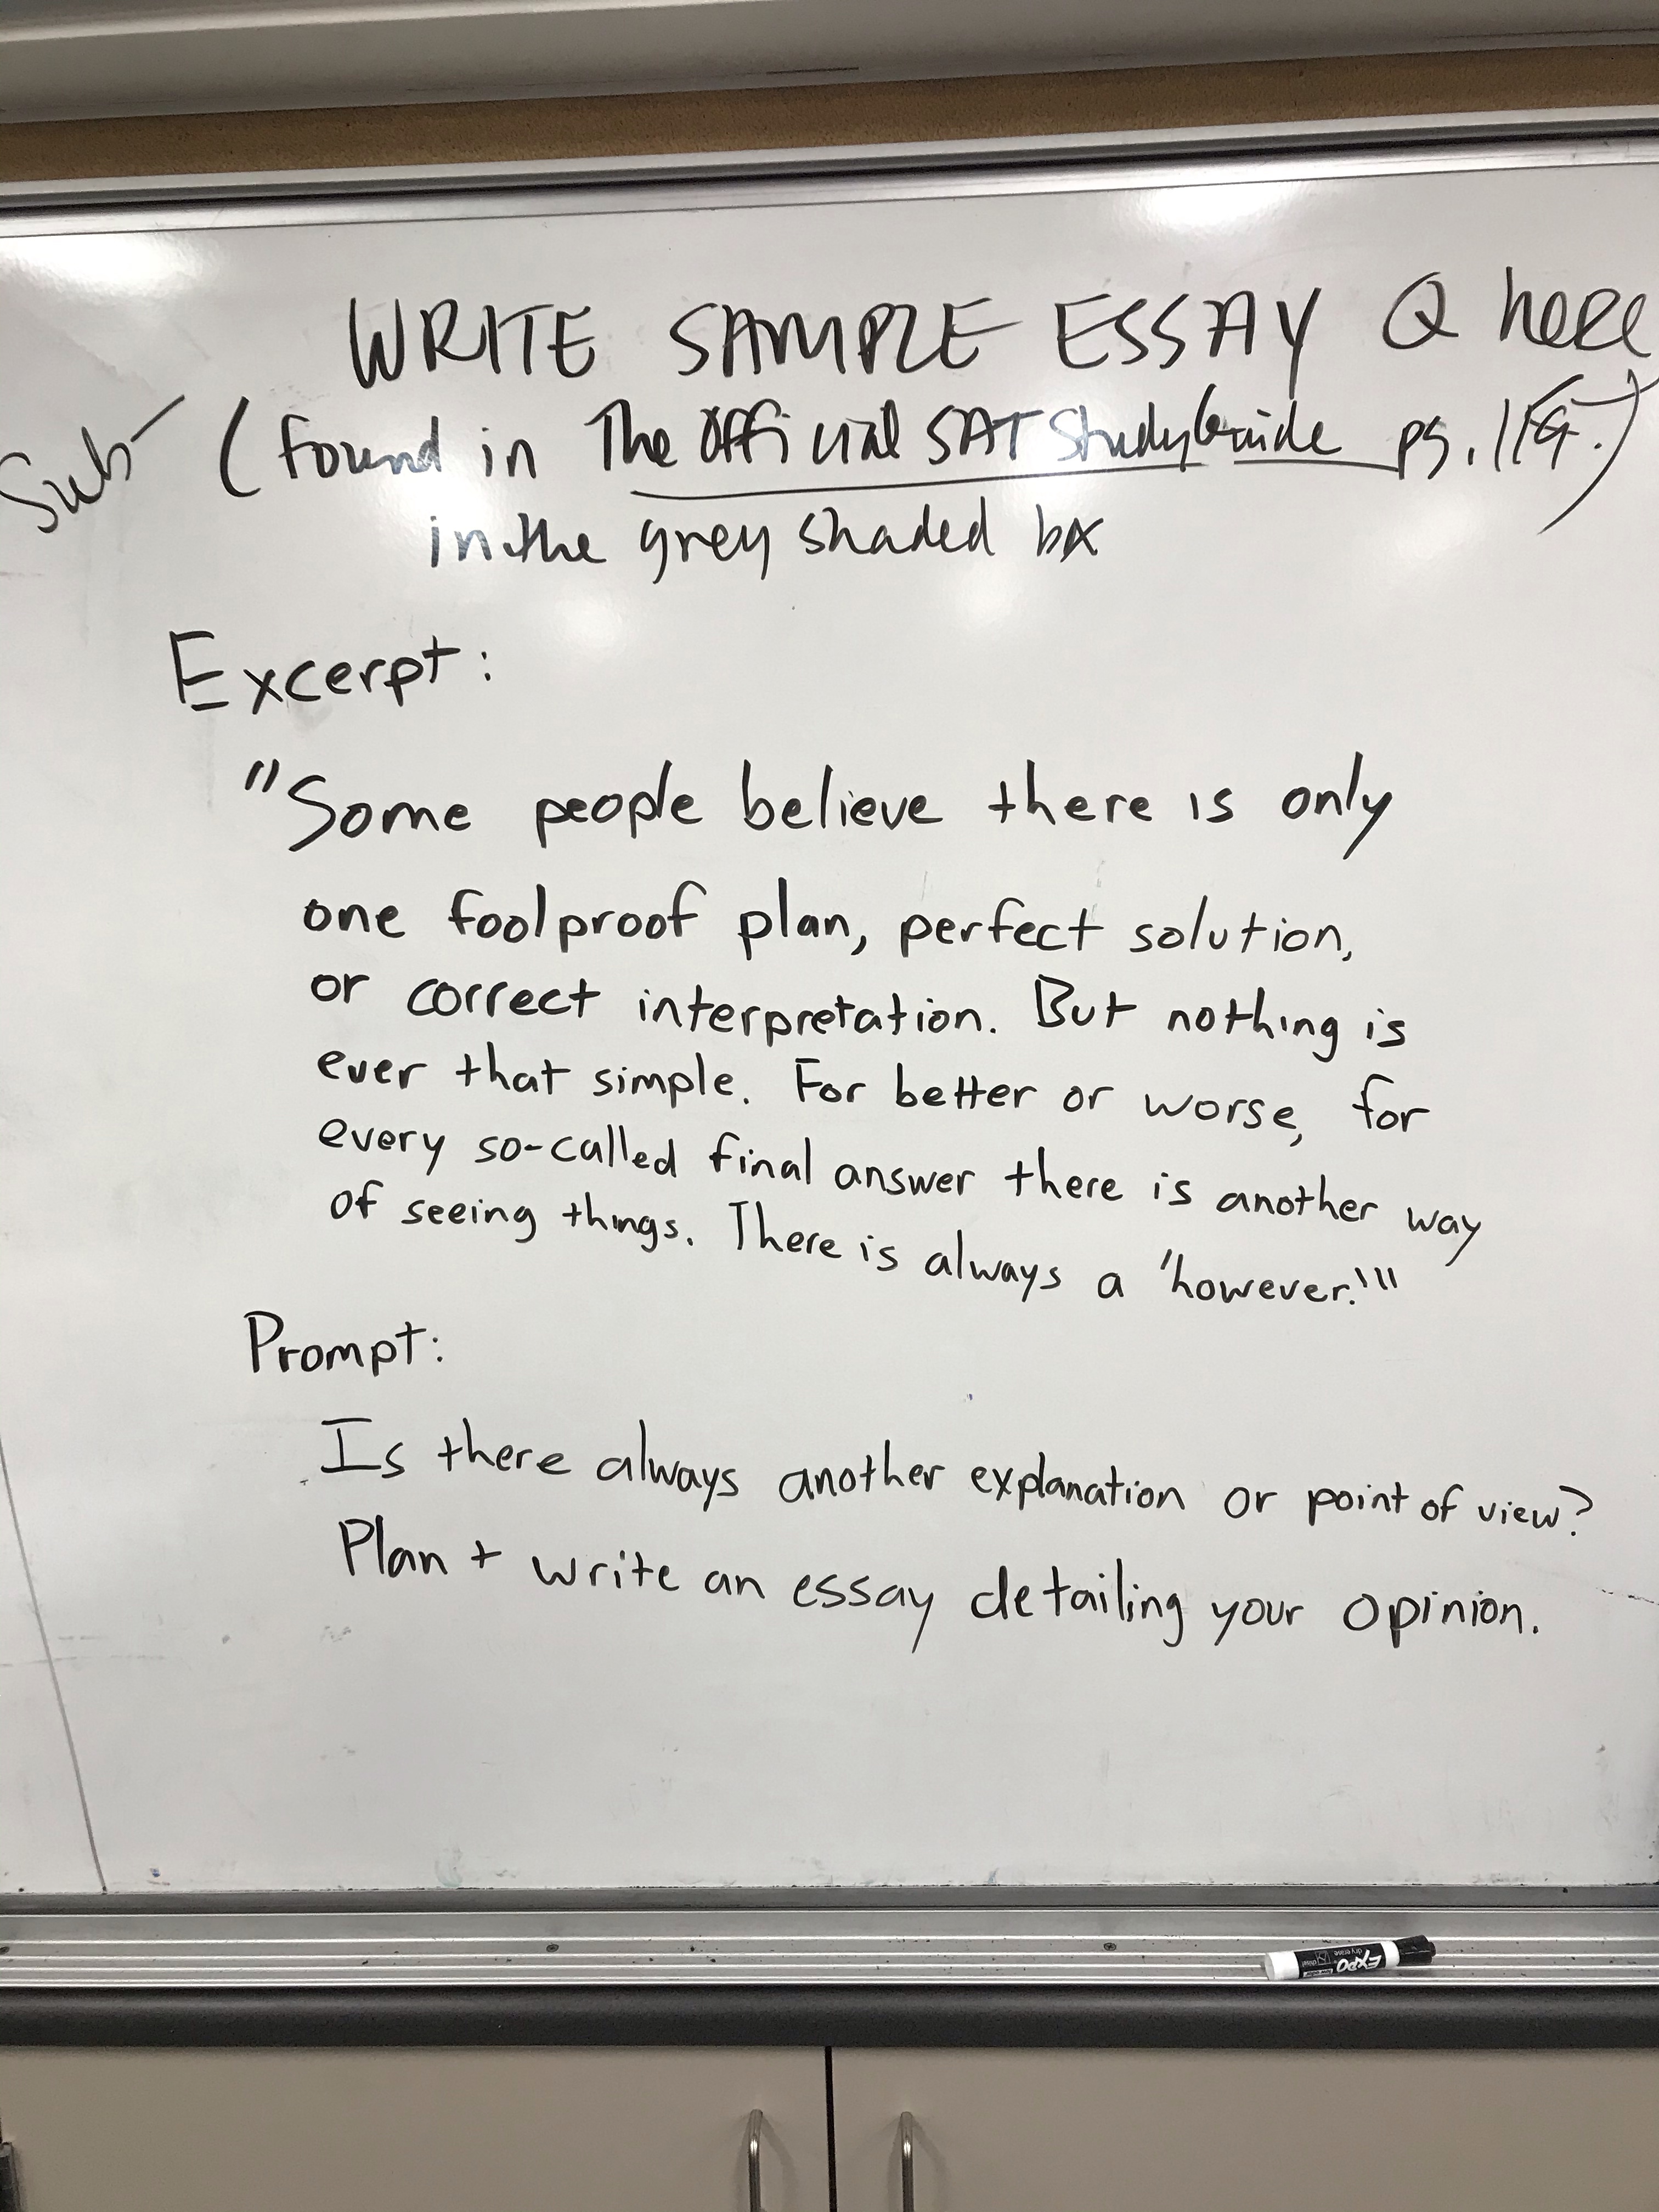 WRITE SAMPLE ESSAY Q here
Sub- (found in The Official SAT Study Guide pg.
in the grey shaded box
Excerpt:
"Some people believe there is only
one foolproof plan, perfect solution,
or correct interpretation. But nothing is
ever that simple. For better or worse, for
every so-called final answer there is another way
of seeing things. There is always a 'however.'"
Prompt:
Is there always another explanation or point of view?
Plan + write an essay detailing your opinion.
EXPO
dry erase